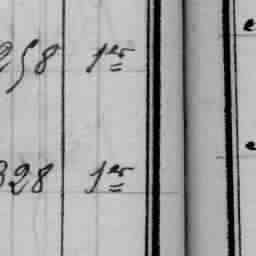 258 1er
328 1er